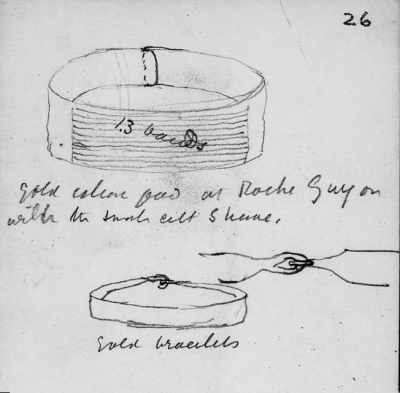 26
13 bands
gold at Roche Guyon
with the small celt
gold bracelets